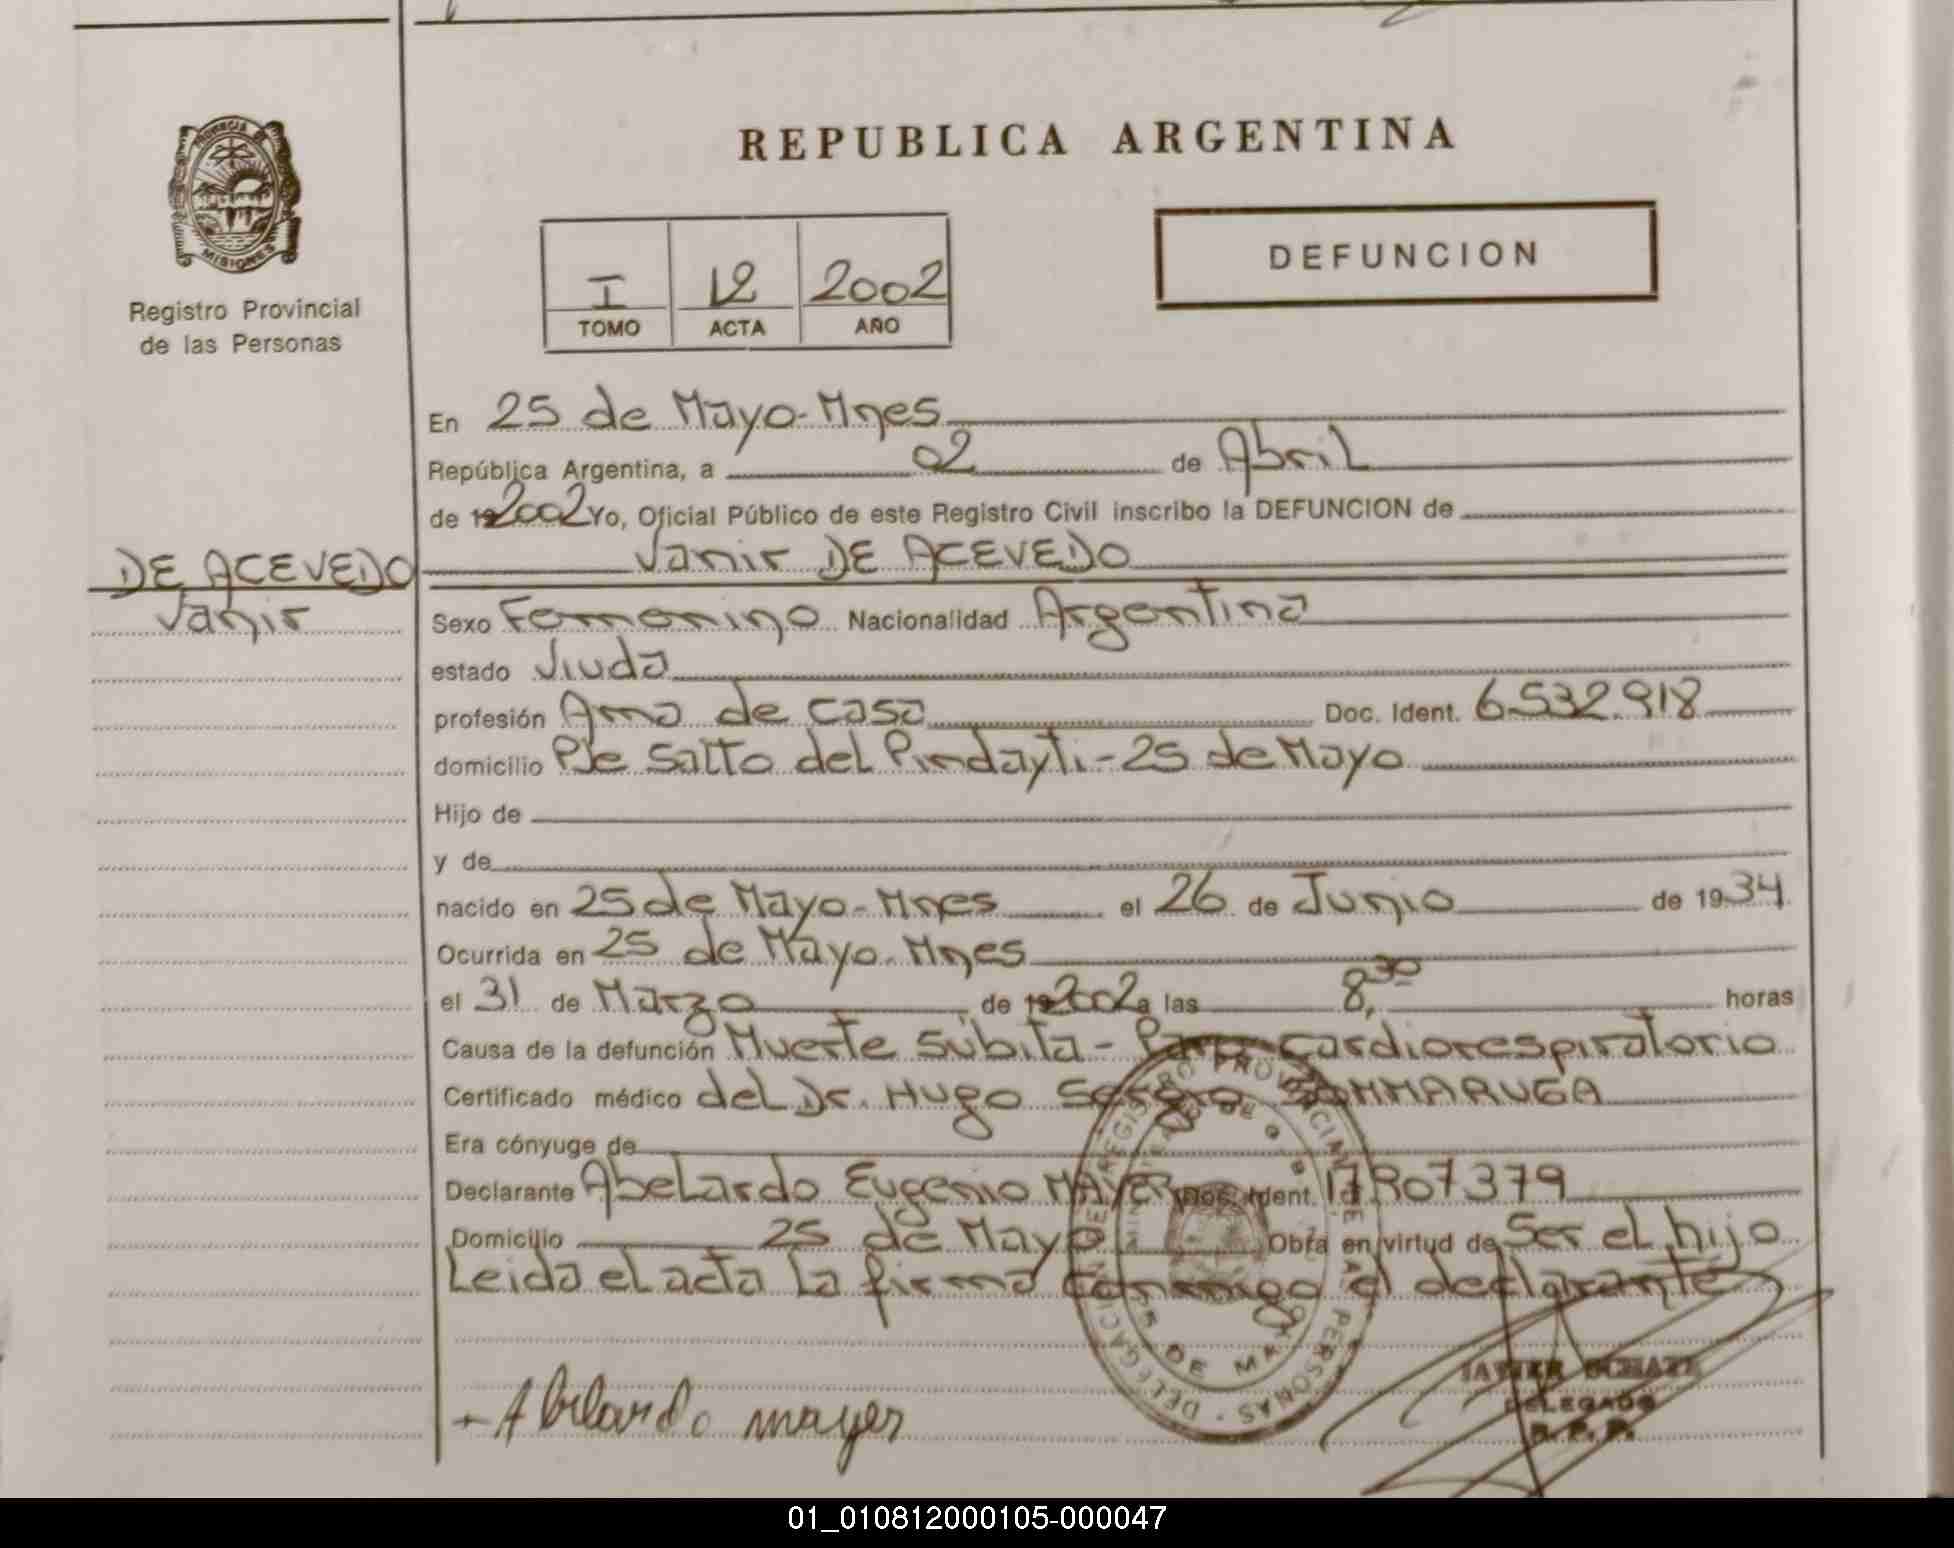 REPUBLICA ARGENTINA
PROVINCIA DE
MISIONES
Registro Provincial
de las Personas
I 12 2002
TOMO ACTA AÑO
DEFUNCION
En 25 de Mayo-Mnes
República Argentina, a 02 de Abril
de 192002 Yo, Oficial Público de este Registro Civil inscribo la DEFUNCION de
Vanir DE ACEVEDO
DE ACEVEDO
Vanir
Sexo Femenino Nacionalidad Argentina
estado Viuda
profesión Ama de casa Doc. Ident. 6.532.918
domicilio Pje Salto del Pindayti-25 de Mayo
Hijo de
y de
nacido en 25 de Mayo-Mnes el 26 de Junio de 1934
Ocurrida en 25 de Mayo-Mnes
el 31 de Marzo de 192002 a las 8,30 horas
Causa de la defunción Muerte súbita- Paro cardiorespiratorio
Certificado médico del Dr. Hugo Sergio SOMMARUGA
Era cónyuge de
Declarante Abelardo Eugenio MAYER Doc. Ident. 17.807379
Domicilio 25 de Mayo Obra en virtud de Ser el hijo
Leida el acta la firma conmigo el declarante
Abelardo mayer
DELEGACION DEL REGISTRO PROVINCIAL DE LAS PERSONAS
25 DE MAYO
JAVIER
DELEGADO
R. P. P.
01_010812000105-000047